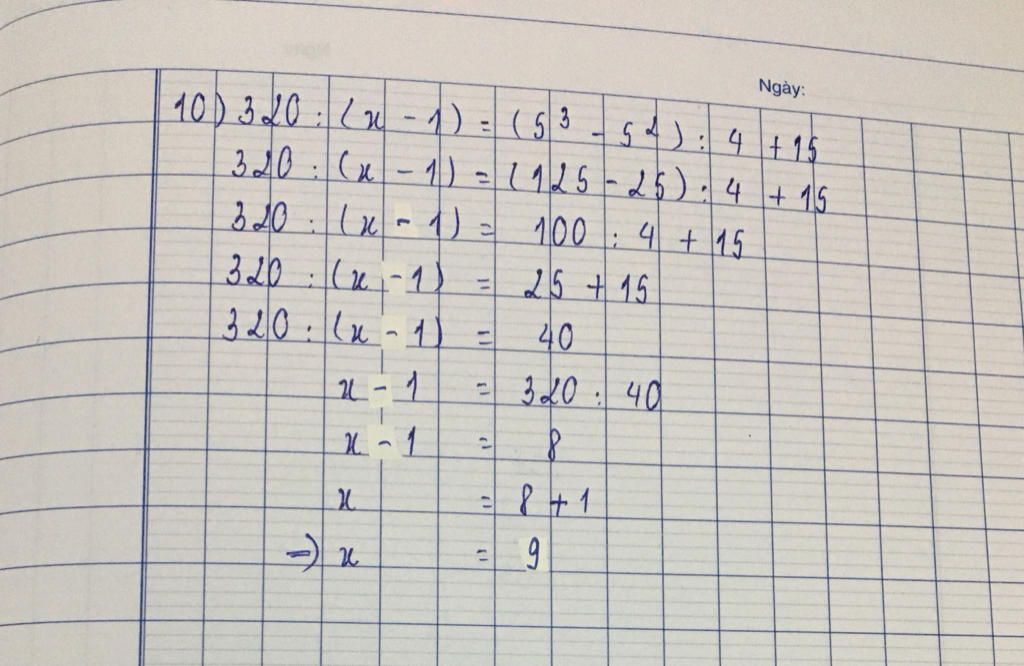 Ngày:
10) 320 : (x - 1) = (5³ - 5²) : 4 + 15
320 : (x - 1) = (125 - 25) : 4 + 15
320 : (x - 1) = 100 : 4 + 15
320 : (x - 1) = 25 + 15
320 : (x - 1) = 40
x - 1 = 320 : 40
x - 1 = 8
x = 8 + 1
⇒ x = 9